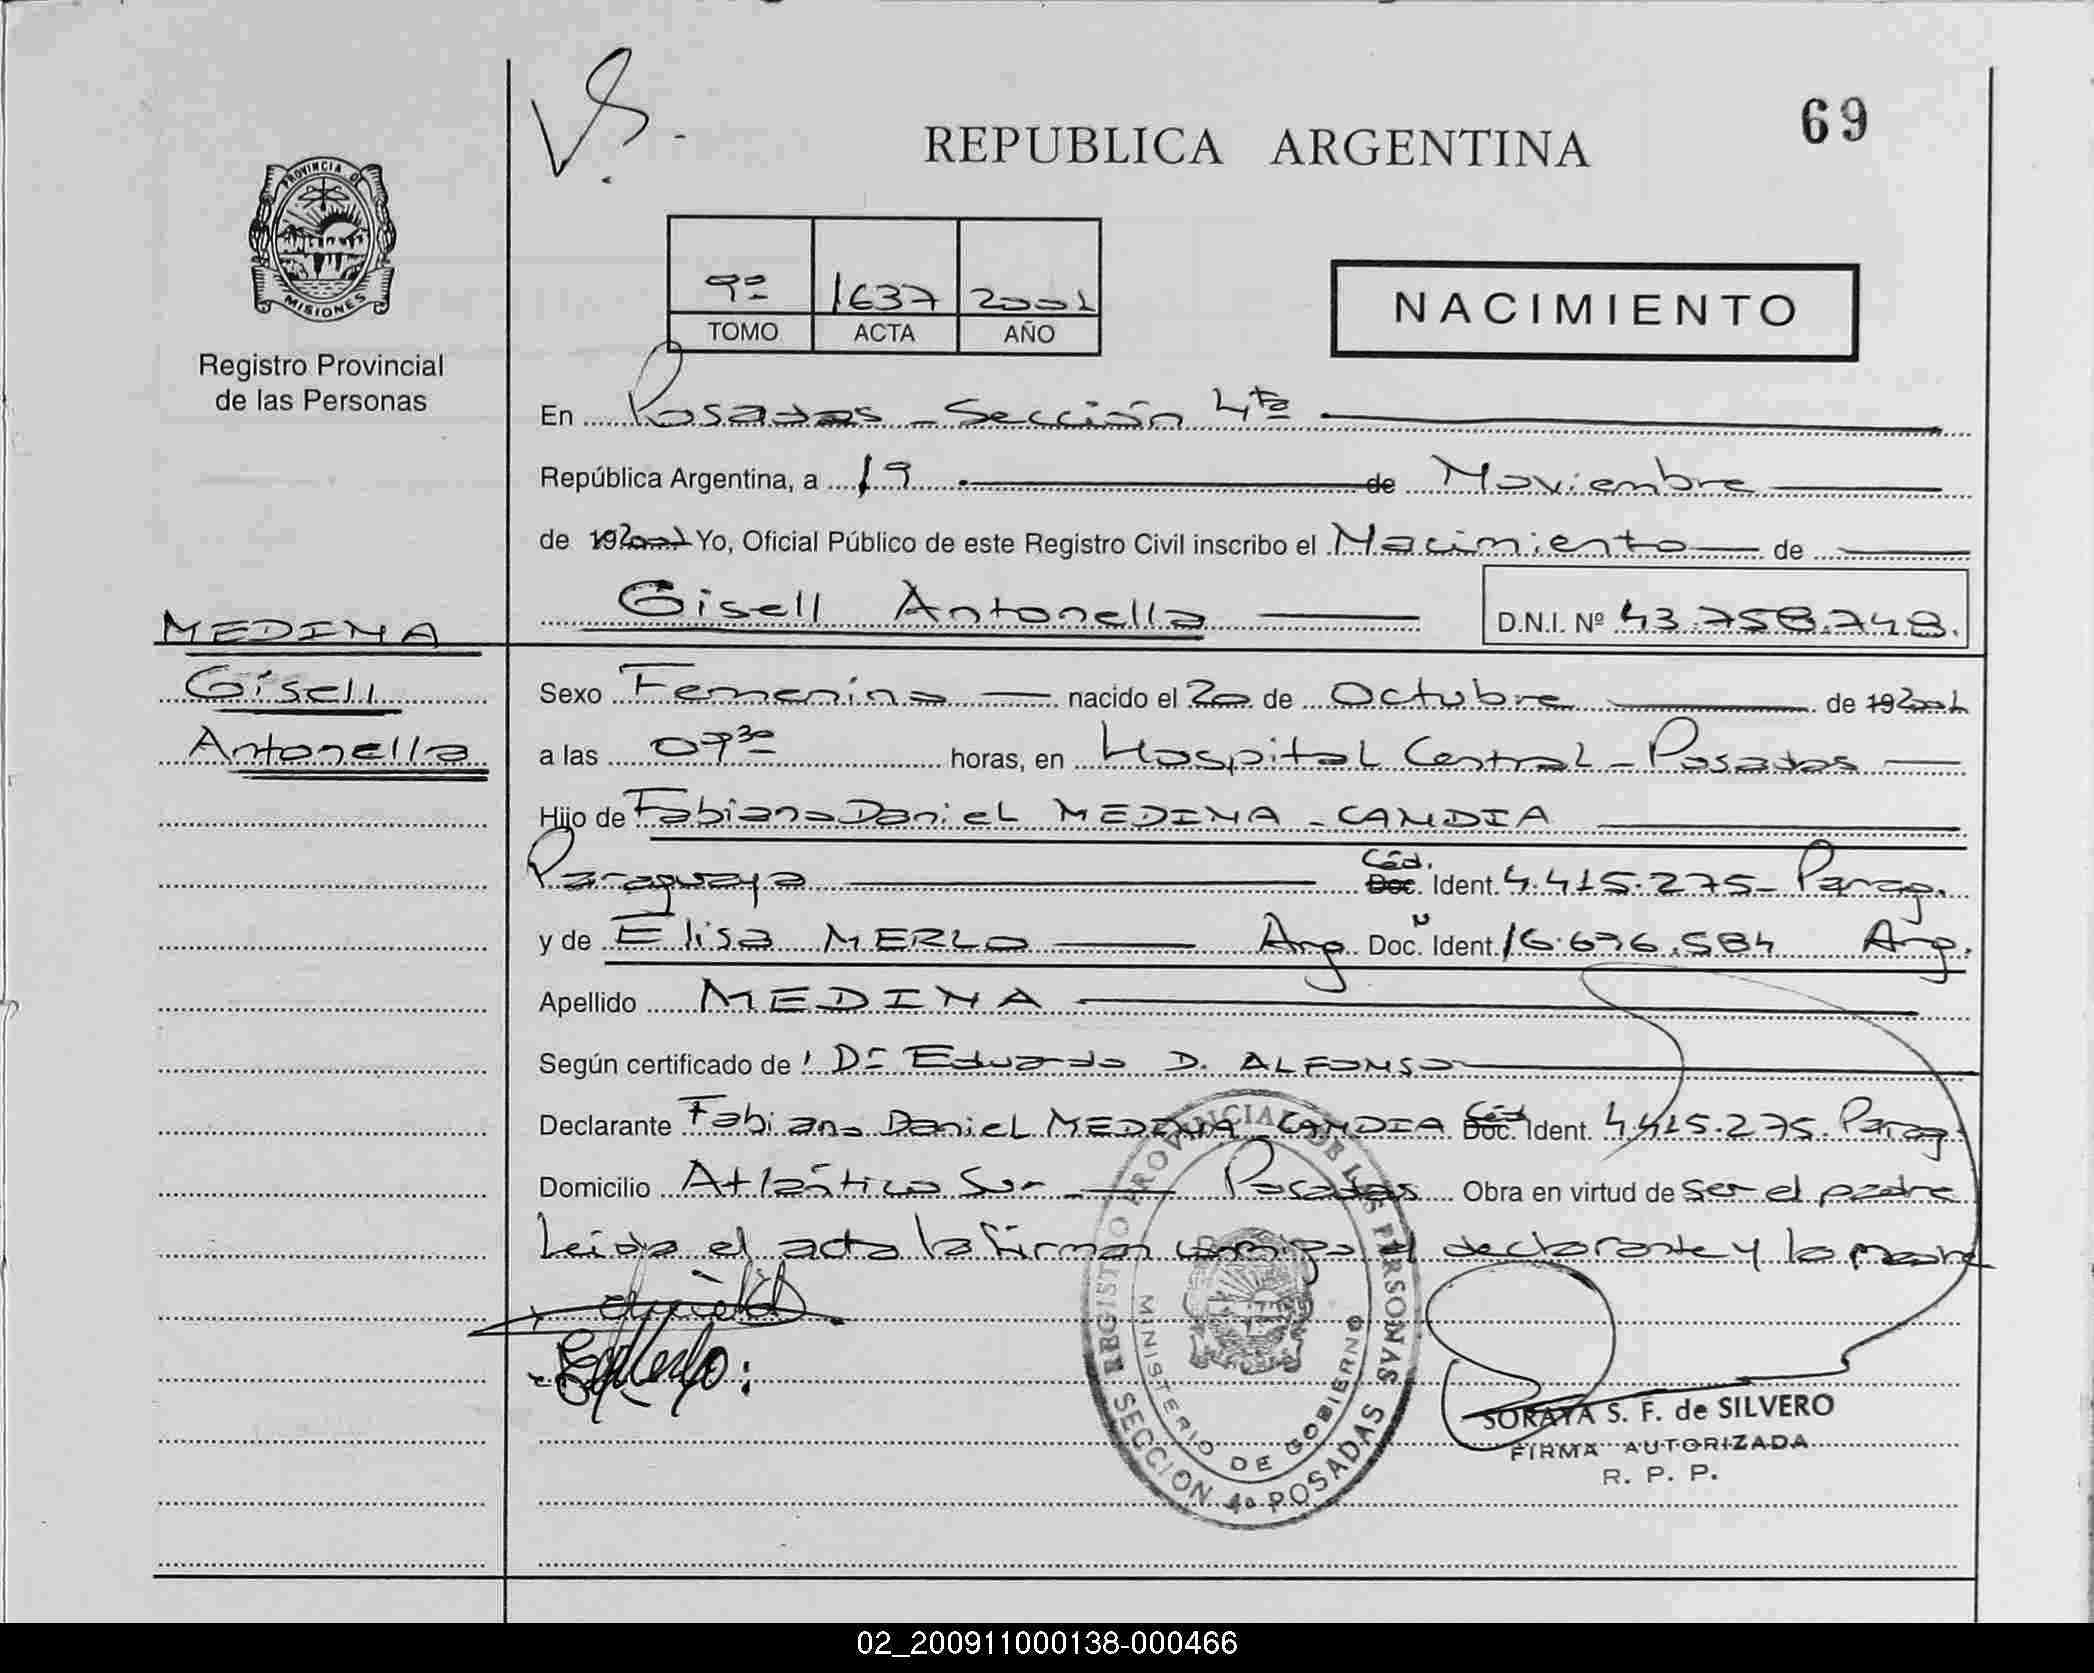 69
REPUBLICA ARGENTINA
PROVINCIA DE
MISIONES
Registro Provincial
de las Personas
9º 1637 2001
TOMO ACTA AÑO
NACIMIENTO
En Posadas - Sección 4ta
República Argentina, a 19 de Noviembre
de 19 2001 Yo, Oficial Público de este Registro Civil inscribo el Nacimiento de
Gisell Antonella D.N.I. Nº 43.758.748.
MEDINA
Gisell
Antonella
Sexo Femenino nacido el 20 de Octubre de 19 2001
a las 07 30 horas, en Hospital Central - Posadas
Hijo de Fabiano Daniel MEDINA - CANDIA
Paraguaya Céd. Doc. Ident. 4.415.275 - Parag.
y de Elisa MERLO Arg. Doc. N Ident. 16.676.584 Arg.
Apellido MEDINA
Según certificado de Dr Eduardo D. ALFONSO
Declarante Fabiano Daniel MEDINA CANDIA Céd Doc. Ident. 4.415.275. Parag.
Domicilio Atlántico Sur - Posadas Obra en virtud de ser el padre
Leida el acta la firman conmigo el declarante y la madre
REGISTRO PROVINCIAL DE LAS PERSONAS
MINISTERIO DE GOBIERNO
SECCION 4a POSADAS
SORAYA S. F. de SILVERO
FIRMA AUTORIZADA
R. P. P.
02_200911000138-000466